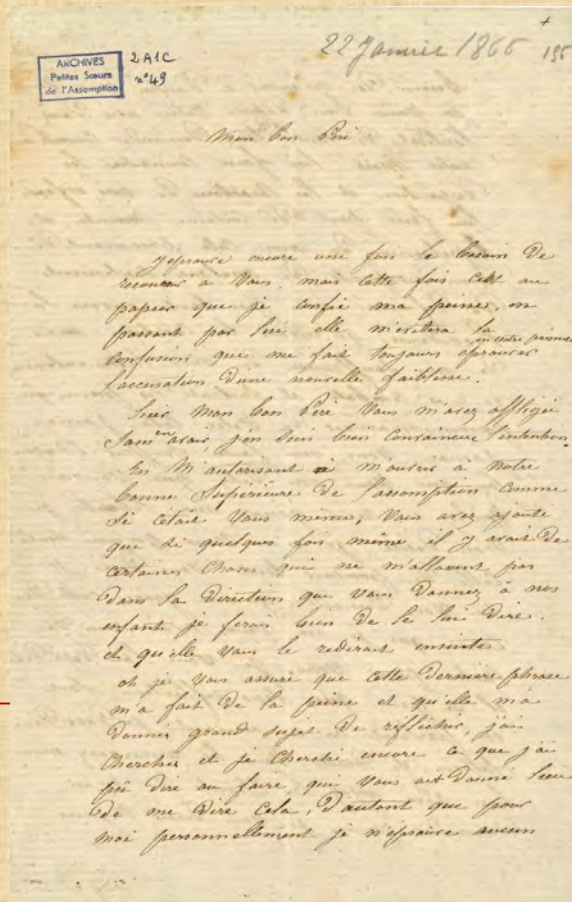 22 Janvier 1866 195
ARCHIVES
Petites Sœurs
de l'Assomption
2A1C
n° 49
Mon bon Père
J'eprouve encore une fois le besoin de
recourir a Vous, mais cette fois c'est au
papier que je confie ma peine, en
passant par lui elle m'evitera la
confusion que me fait toujours eprouver
l'accusation d'une nouvelle faiblesse.
hier Mon bon Père Vous m'avez affligée
sans en avoir, j'en suis bien convaincue l'intention.
En M'autorisant a m'ouvrir à notre
bonne Supérieure de l'assomption comme
si c'était Vous même, Vous avez ajouté
que si quelques fois même il y avait de
certaines choses qui ne m'allaient pas
dans la direction que Vous donnez à nos
enfants je ferais bien de le lui dire.
et qu'elle Vous le redirait ensuite
oh je Vous assure que cette dernière phrase
m'a fait de la peine et qu'elle m'a
donner grand sujet de réfléchir, j'ai
chercher et je cherche encore ce que j'ai
pû dire au faire, qui Vous ait donné lieu
de me dire cela, d'autant que pour
moi personnellement je n'eprouve aucun